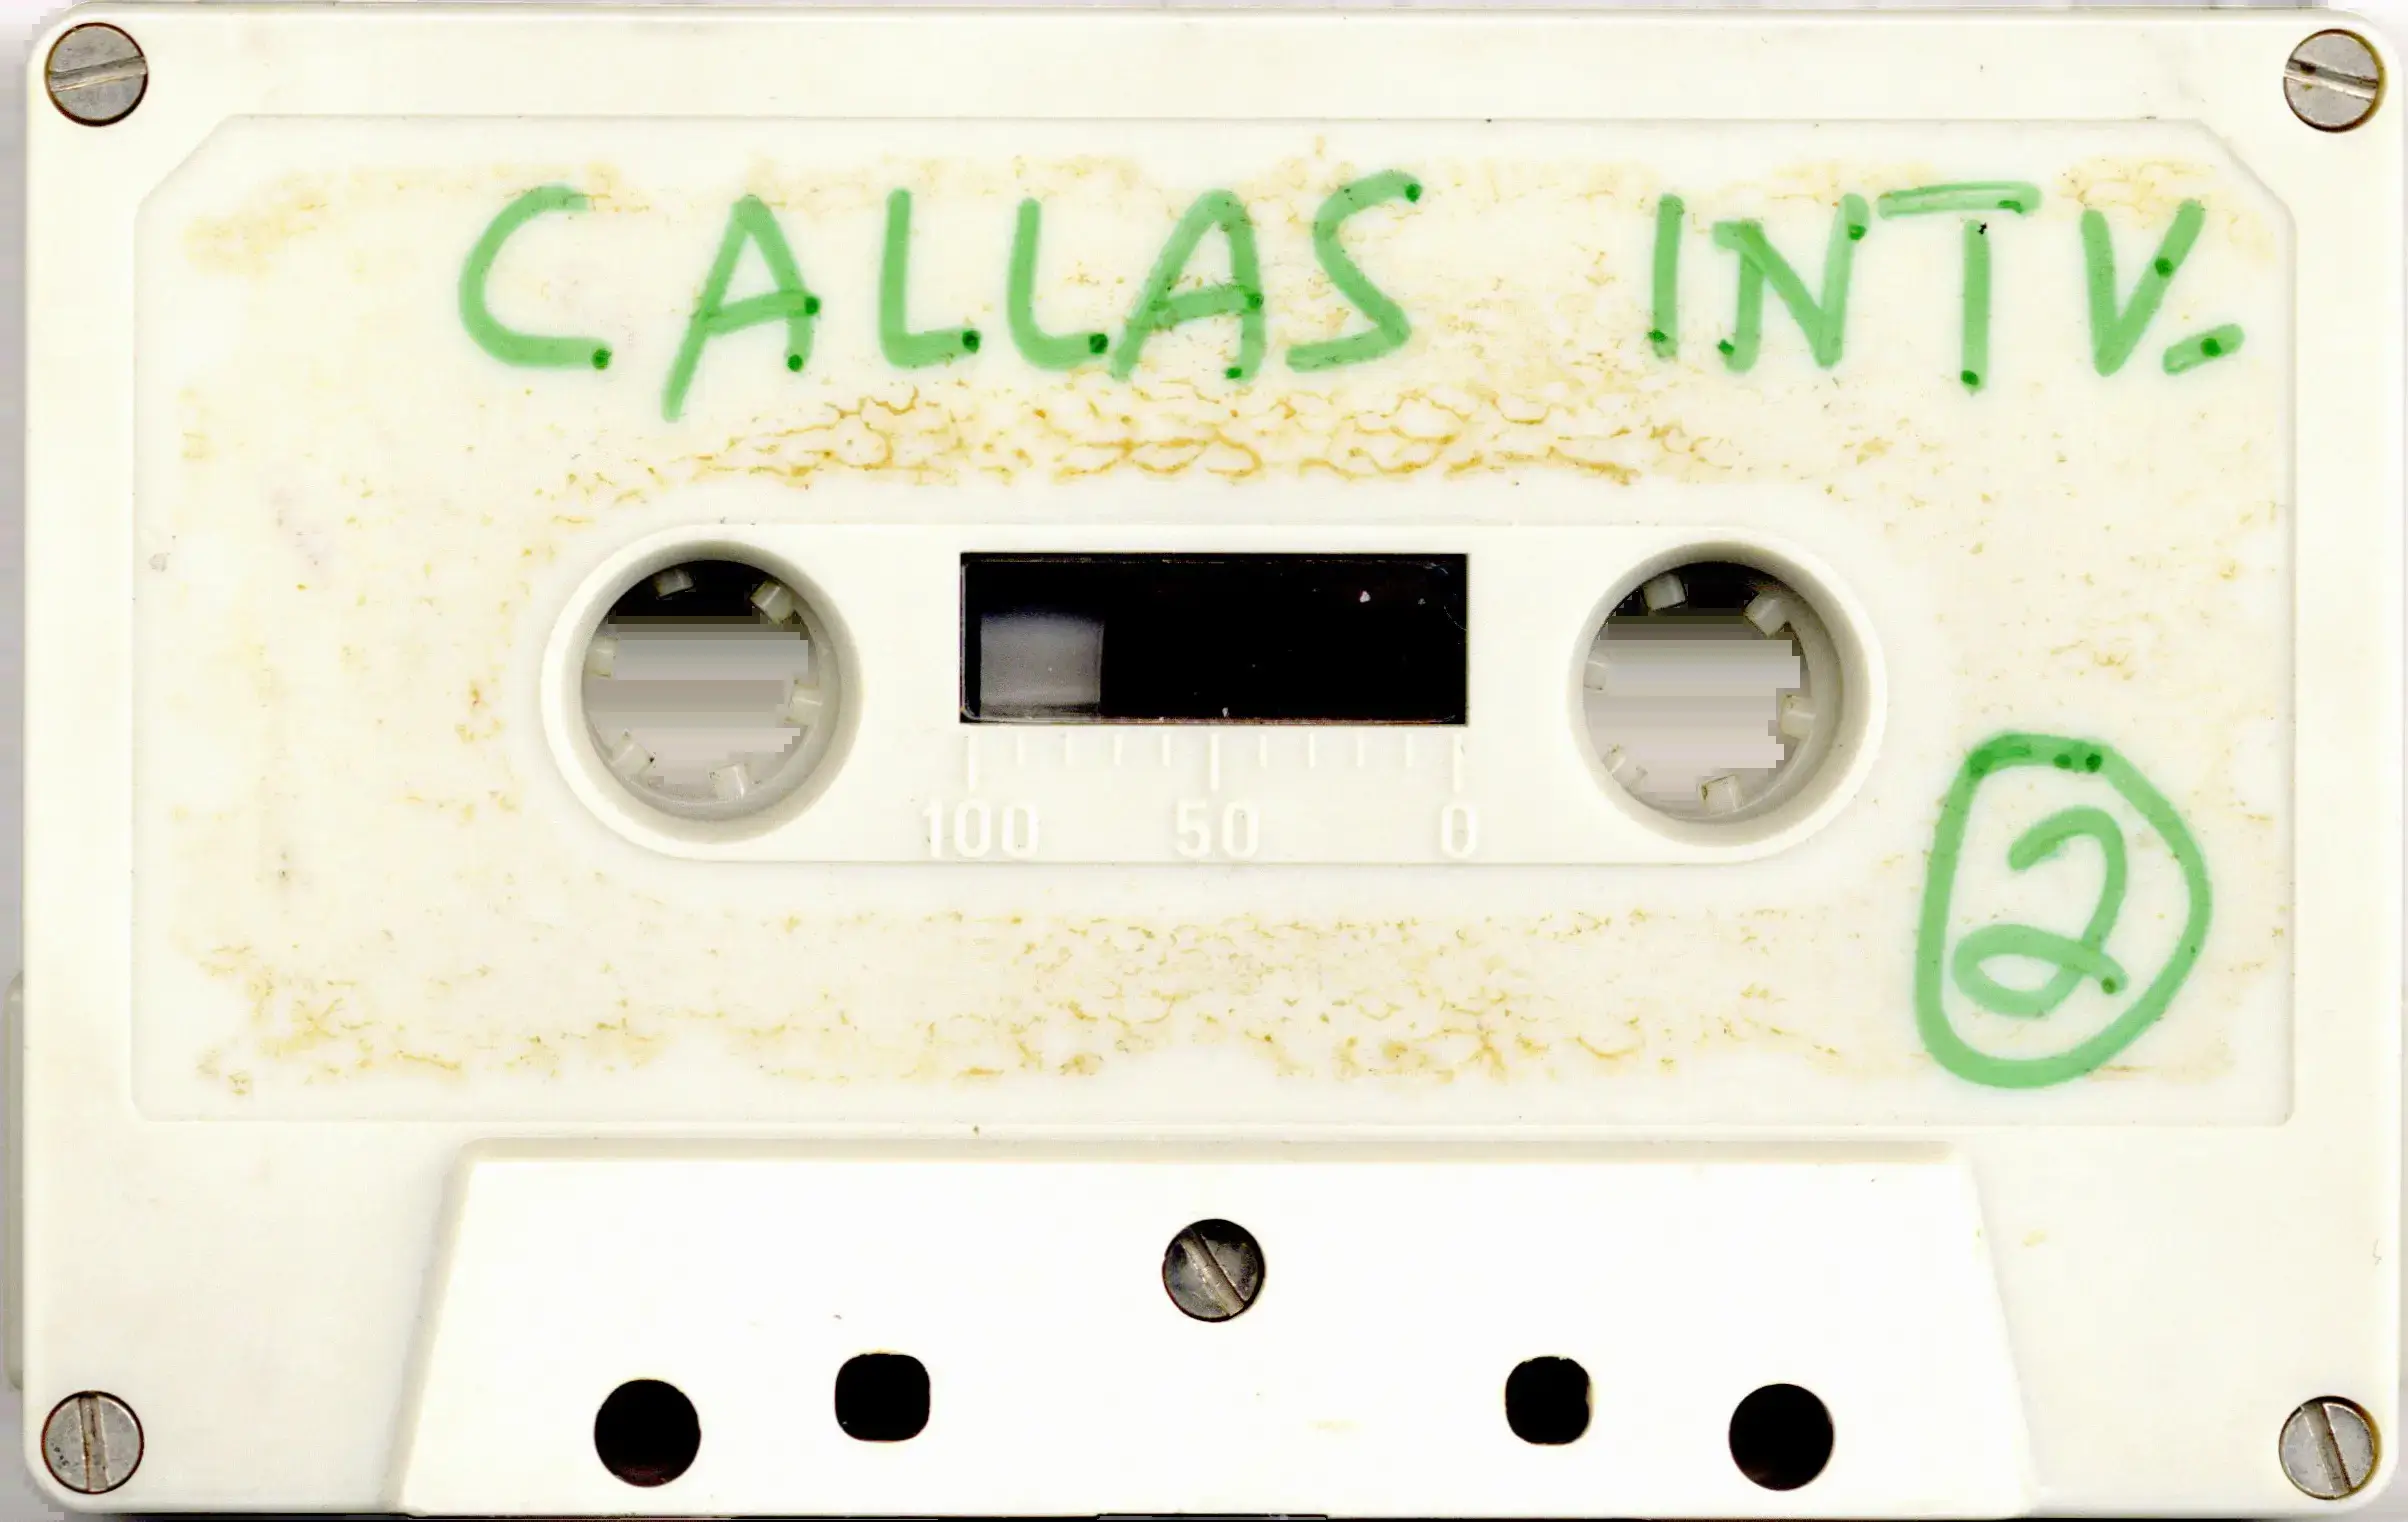 CALLAS INTV.
100 50 0
2